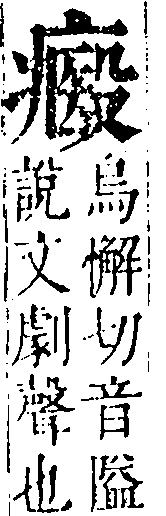 烏懈切音隘
說文劇聲也